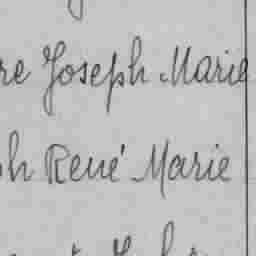 re Joseph Marie
h René Marie